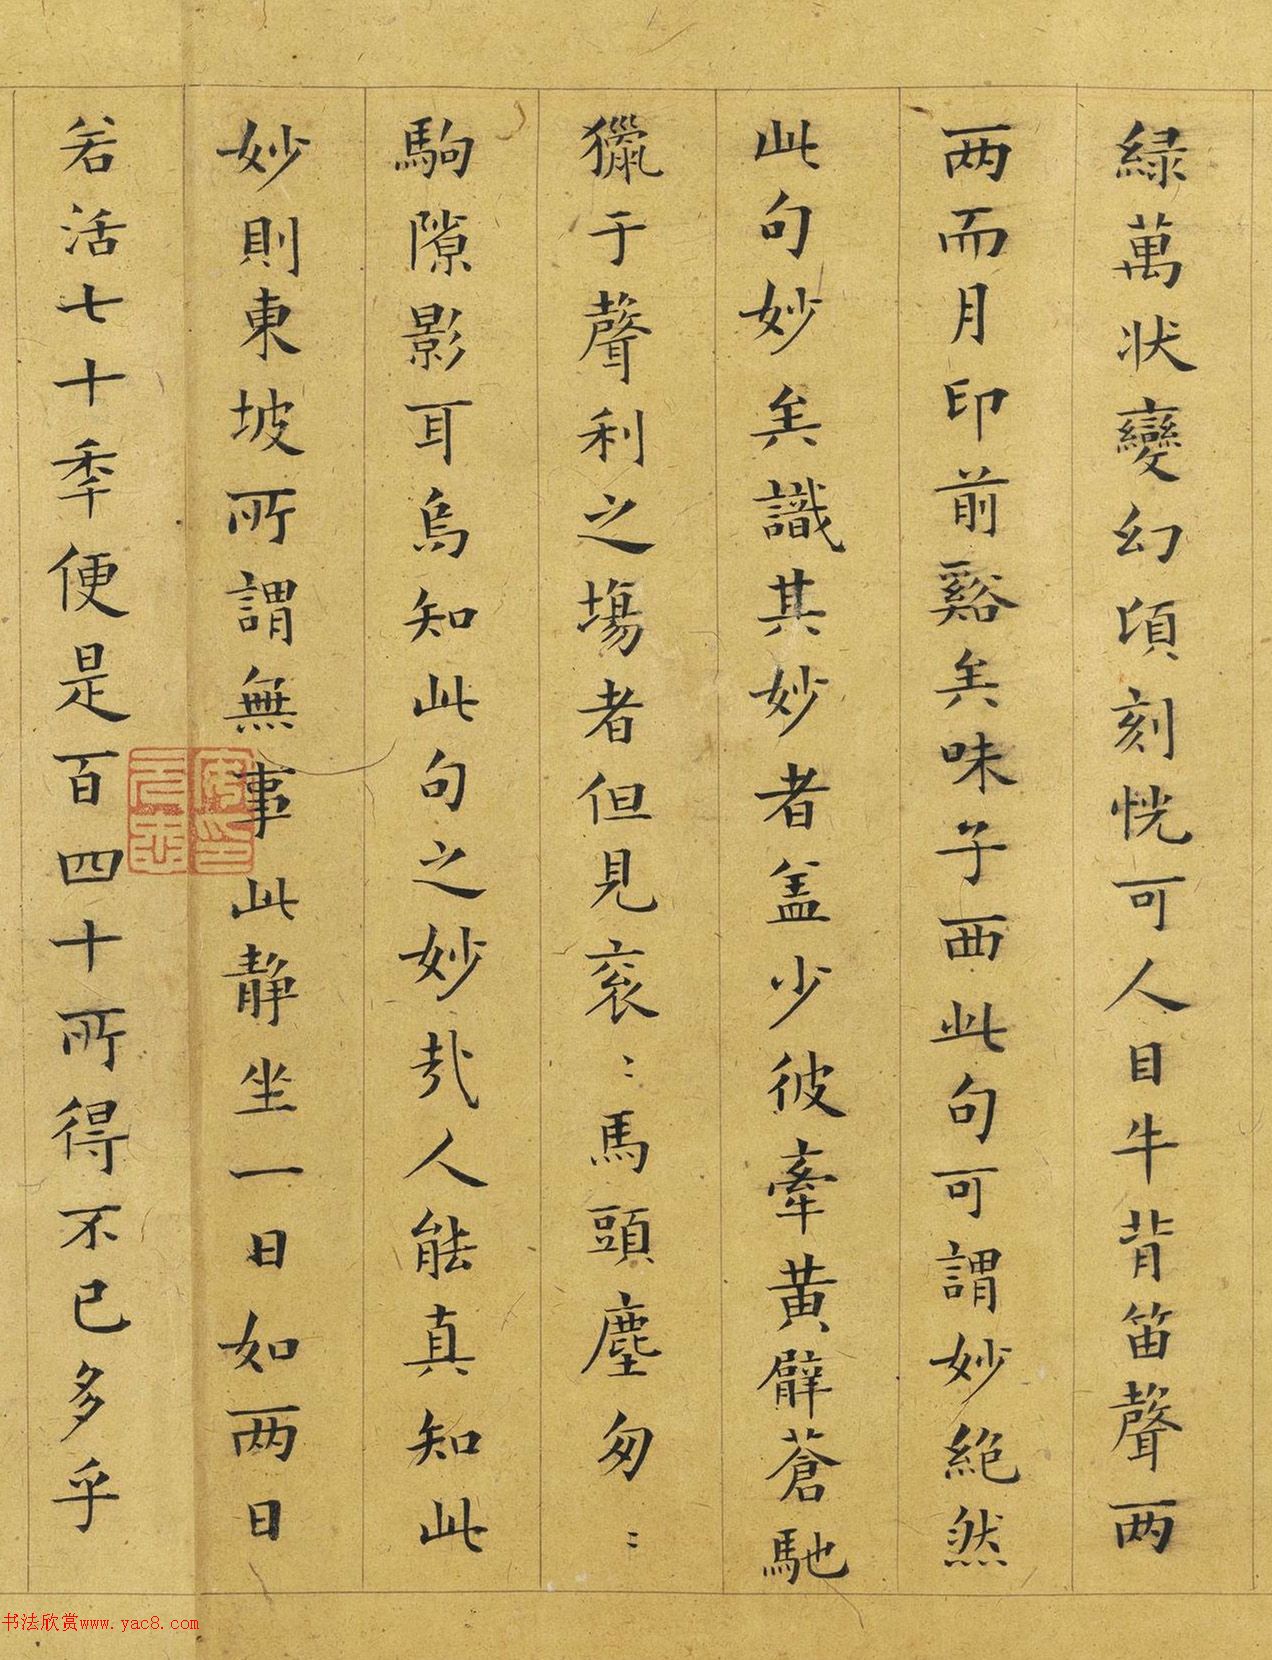 緑萬状變幻頃刻恍可人目牛背笛聲两
两而月印前谿矣味子西此句可謂妙絶然
此句妙矣識其妙者盖少彼牽黄臂蒼馳
獵于聲利之塲者但見衮〻馬頭塵匆〻
駒隙影耳烏知此句之妙哉人能真知此
妙則東坡所謂無事此静坐一日如两日
若活七十秊便是百四十所得不已多乎
书法欣赏www.yac8.com